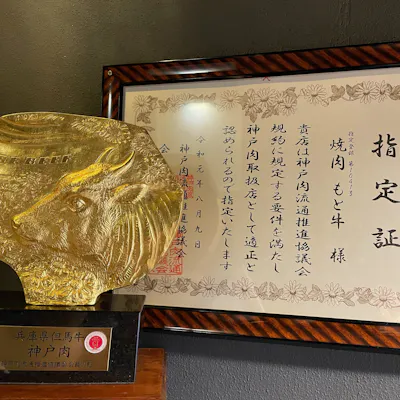 指定証
焼肉 もと牛 様
貴店は神戸肉流通推進協議会
規約に規定する要件を満たし
神戸肉取扱店として適正と
認められるので指定いたします
令和元年八月九日
神戸肉流通推進協議会
会
兵庫県但馬牛
神戸肉